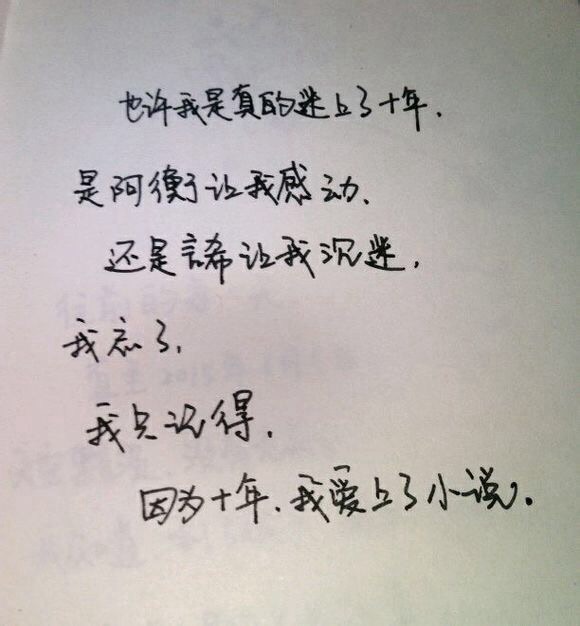 也许我是真的迷上了十年.
是阿衡让我感动、
还是言希让我沉迷,
我忘了,
我只记得,
因为十年、我爱上了小说。